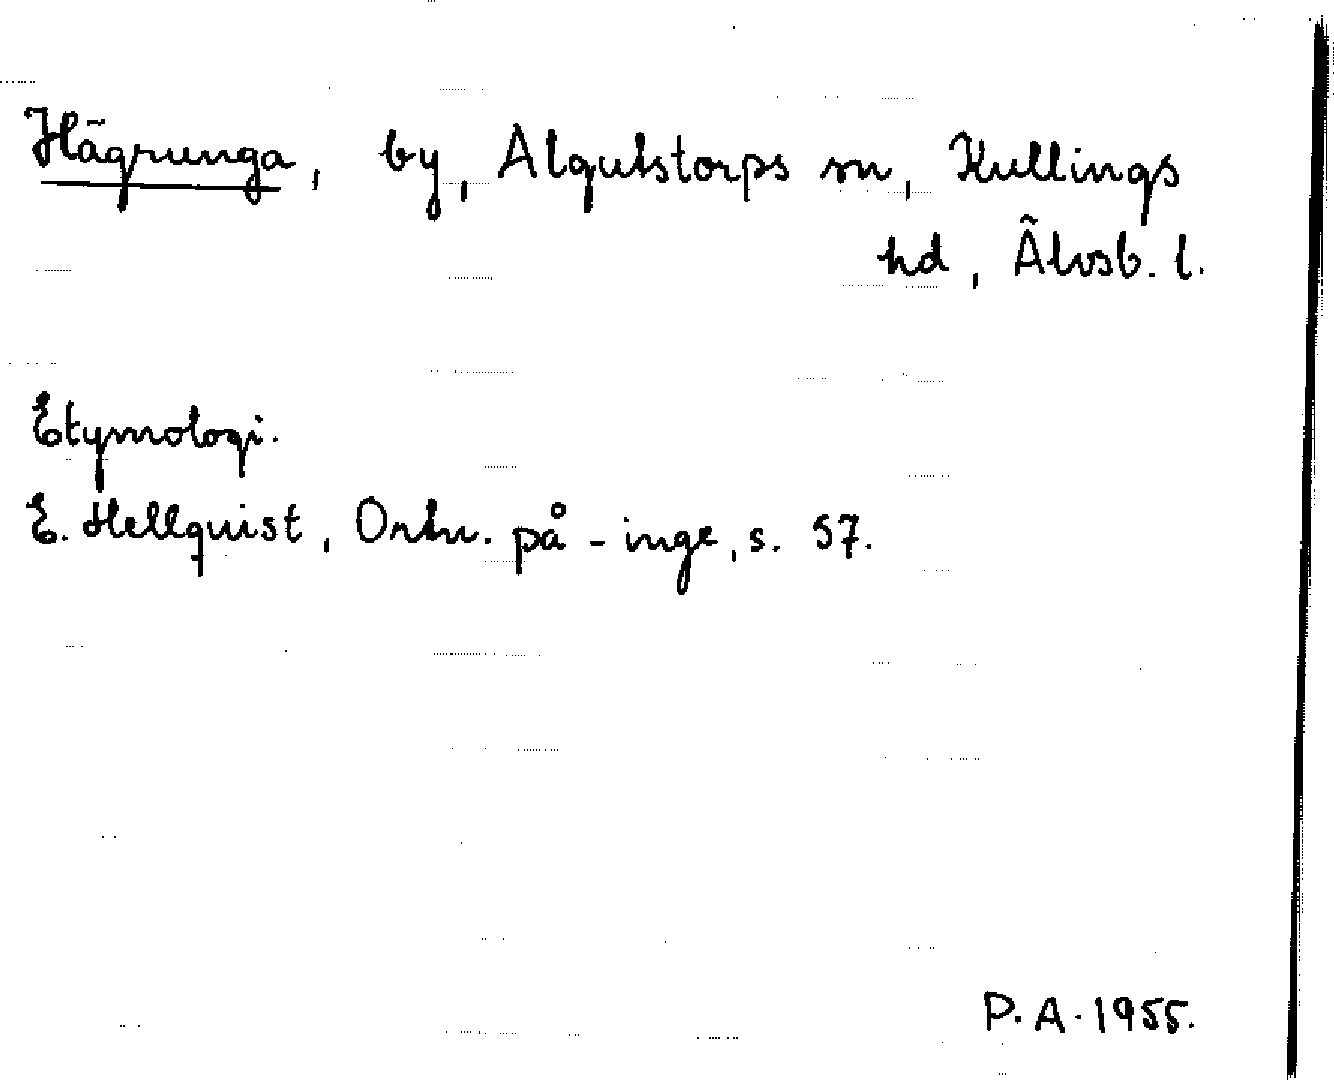 Hägrunga, by, Algutstorps sn, Kullings
hd, Älvsb. l.
Etymologi.
E. Hellquist, Ortn. på -inge, s. 57.
P. A. 1955.